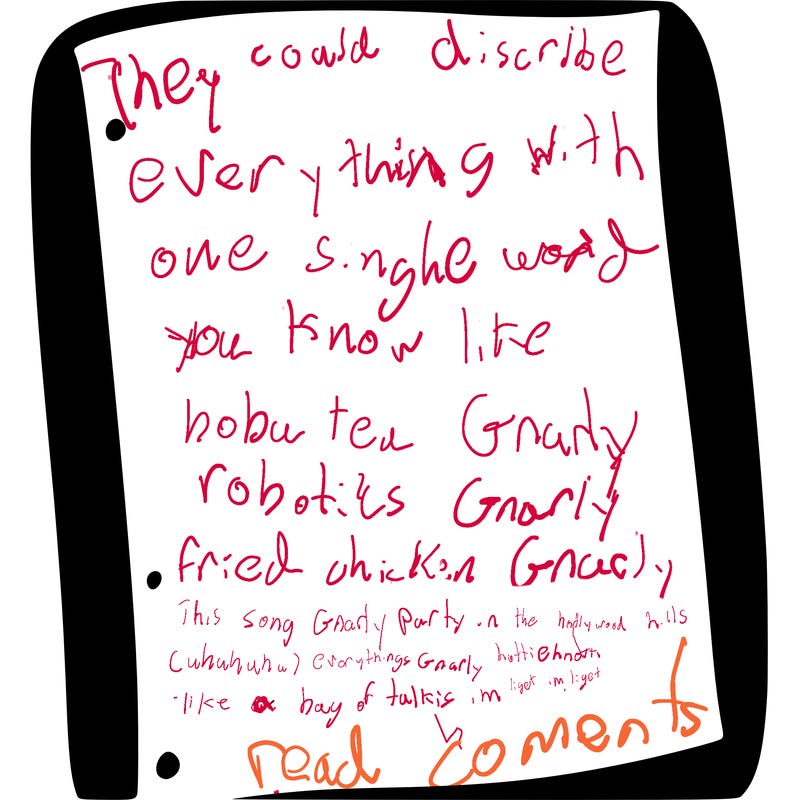 They could discribe
everything with
one singhe word
you know like
boba tea Gnarly
robotics Gnarly
fried chicken Gnarly
This song Gnarly Party in the hollywood hills
(uhuhuhu) everythings Gnarly
like a bag of talkis im
read coments